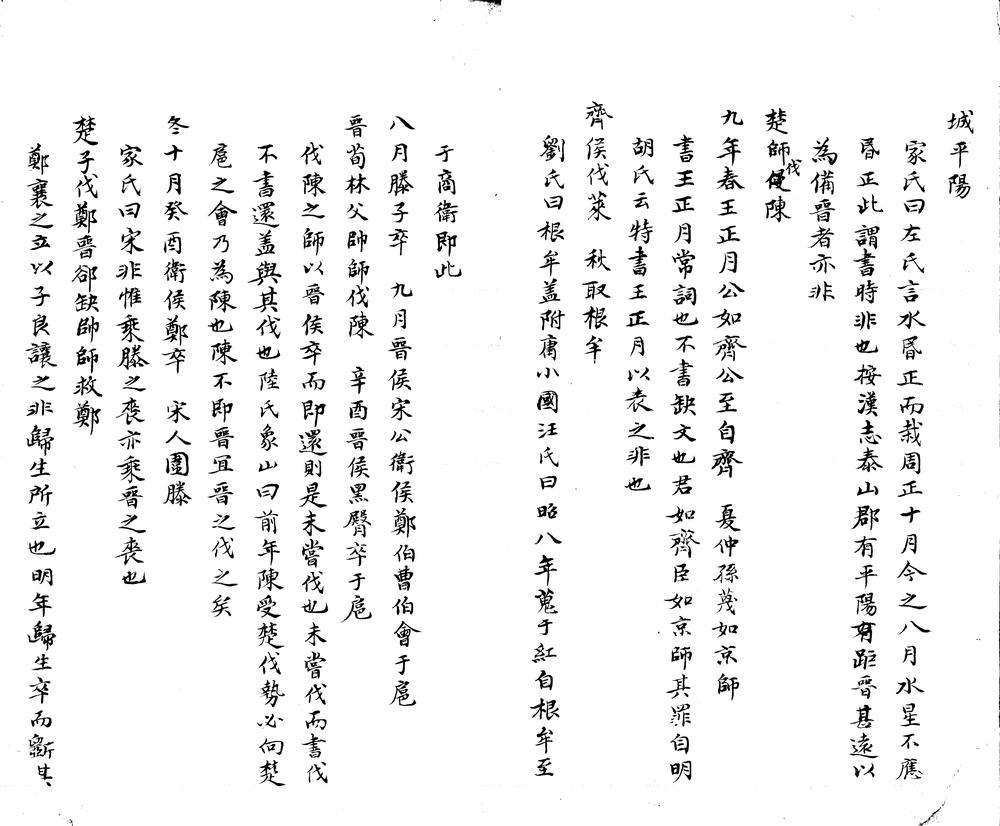 城平陽
家氏曰左氏言水昬正而栽周正十月今之八月水星不應
昬正此謂書時非也按漢志泰山郡有平陽有距晉甚遠以
為備晉者亦非
楚師伐陳
九年春王正月公如齊公至自齊　夏仲孫蔑如京師
書王正月常詞也不書缺文也君如齊臣如京師其罪自明
胡氏云特書王正月以表之非也
齊侯伐萊　秋取根牟
劉氏曰根牟盖附庸小國汪氏曰昭八年蒐于紅自根牟至
于商衛即此
八月滕子卒　九月晉侯宋公衛侯鄭伯曹伯會于扈
晉荀林父帥師伐陳　辛酉晉侯黑臀卒于扈
伐陳之師以晉侯卒而即還則是未嘗伐也未嘗伐而書伐
不書還盖與其伐也陸氏象山曰前年陳受楚伐勢必向楚
扈之會乃為陳也陳不即晉宜晉之伐之矣
冬十月癸酉衛侯鄭卒　宋人圍滕
家氏曰宋非惟乘滕之喪亦乘晉之喪也
楚子伐鄭晉郤缺帥師救鄭
鄭襄之立以子良讓之非歸生所立也明年歸生卒而斲其